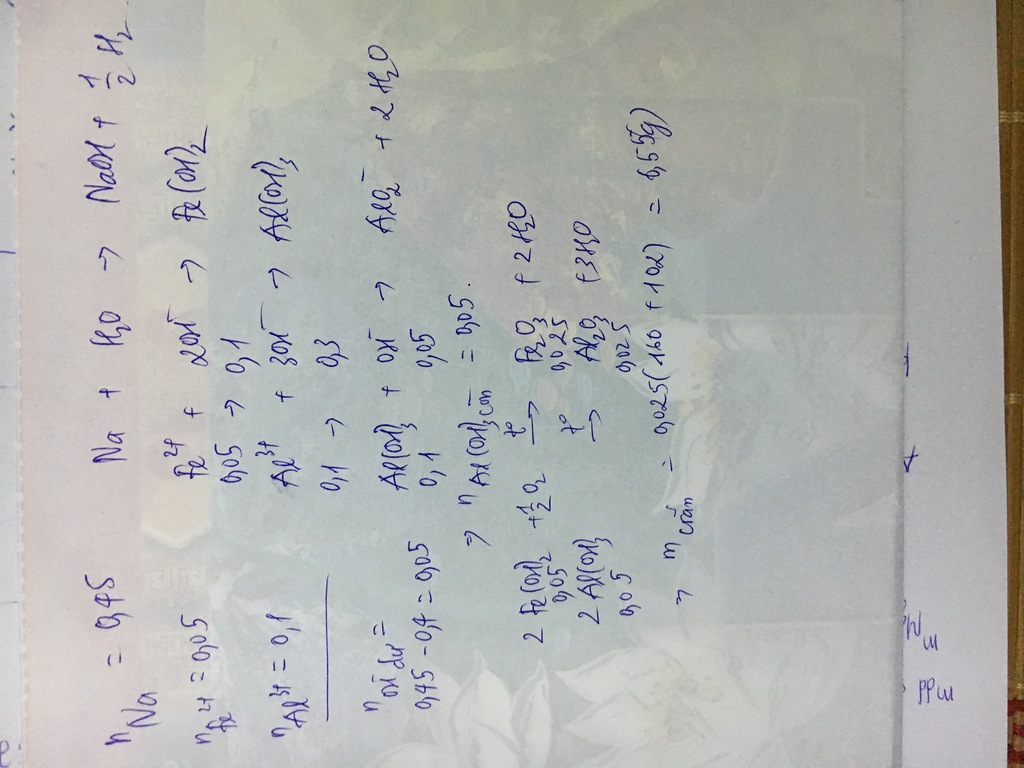 n Na = 0,45 Na + H2O → NaOH + 1/2 H2
n Fe2+ = 0,05 Fe2+ + 2OH- → Fe(OH)2
0,05 → 0,1
n Al3+ = 0,1 Al3+ + 3OH- → Al(OH)3
0,1 → 0,3
n OH- dư = Al(OH)3 + OH- → AlO2- + 2H2O
0,45 - 0,4 = 0,05 0,1 0,05
⇒ n Al(OH)3 còn = 0,05.
2 Fe(OH)2 + 1/2 O2 t° → Fe2O3 + 2H2O
0,05 0,025
2 Al(OH)3 t° → Al2O3 + 3H2O
0,05 0,025
⇒ m crắn = 0,025(160 + 102) = 6,55g)